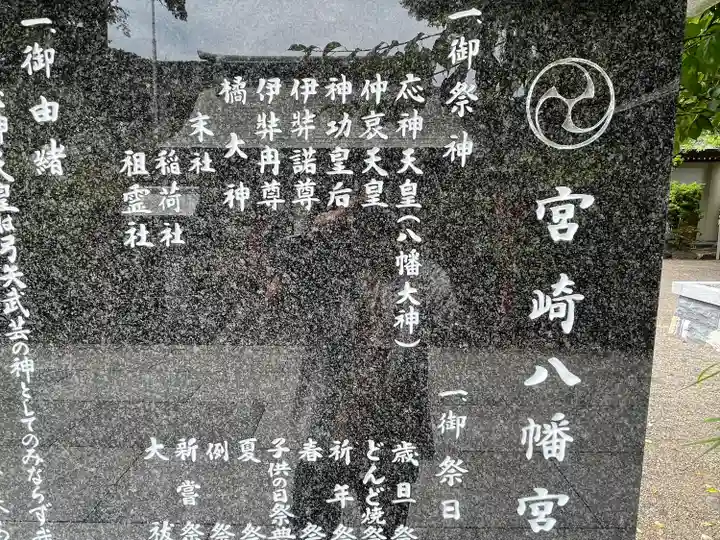 宮崎八幡宮
一、御祭神
応神天皇(八幡大神)
仲哀天皇
神功皇后
伊弉諾尊
伊弉冉尊
橘大神
末社
稲荷社
祖霊社
一、御祭日
歳旦祭
どんど焼祭
祈年祭
春祭
子供の日祭典
夏祭
例祭
新嘗祭
大祓
一、御由緒
神天皇は弓矢武芸の神としてのみならず